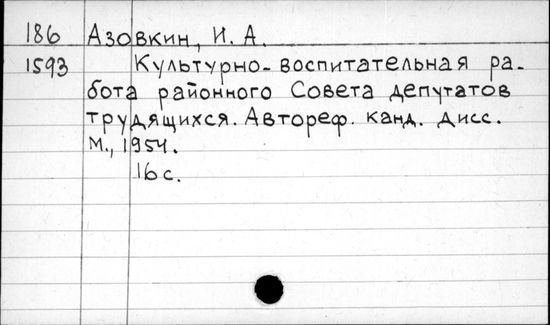 186 Азовкин, И. А.
1593 Культурно-воспитательная ра-
бота районного Совета депутатов
трудящихся. Автореф. канд. дисс.
М., 1954.
16 с.